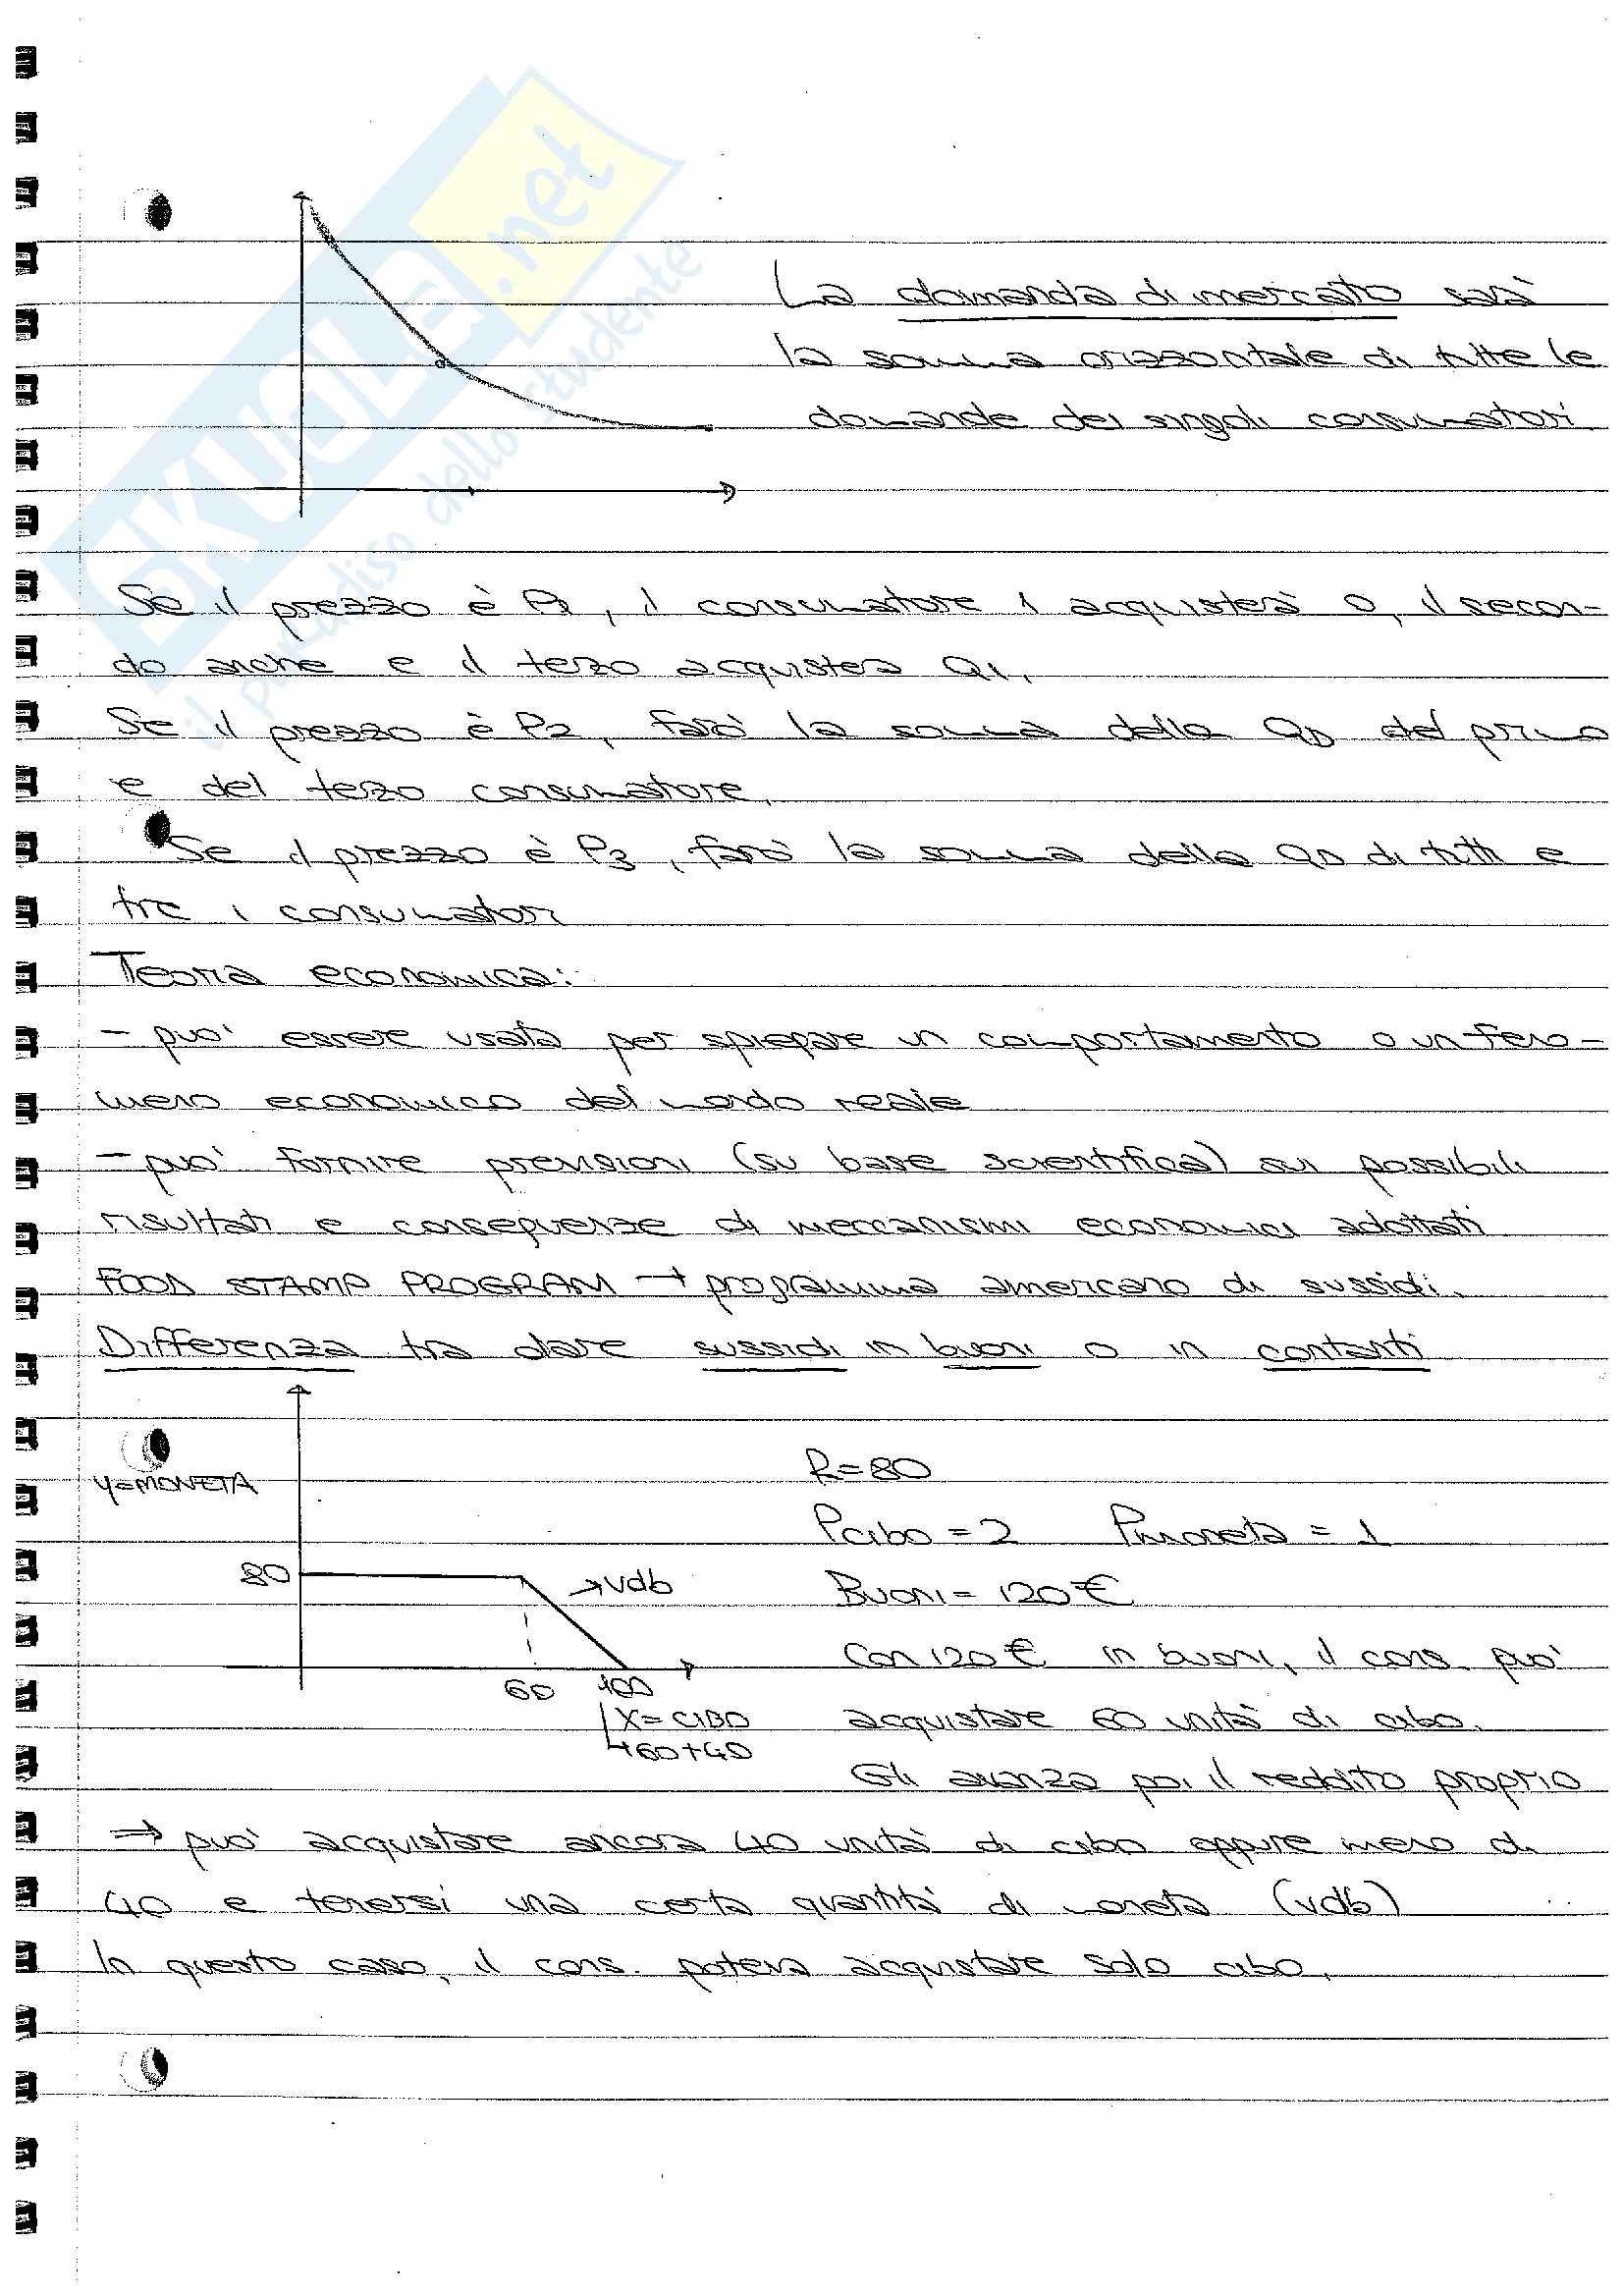 SKUOLA.net
il paradiso dello studente
La domanda di mercato sarà
la somma orizzontale di tutte le
domande dei singoli consumatori.
Se il prezzo è P1, il consumatore 1 acquisterà 0, il secon-
do anche e il terzo acquisterà Q1.
Se il prezzo è P2, farò la somma della QD del primo
e del terzo consumatore.
Se il prezzo è P3, farò la somma della QD di tutti e
tre i consumatori
Teoria economica:
- può essere usata per spiegare un comportamento o un feno-
meno economico del mondo reale
- può fornire previsioni (su base scientifica) sui possibili
risultati e conseguenze di meccanismi economici adottati
FOOD STAMP PROGRAM → programma americano di sussidi.
Differenza tra dare sussidi in buoni o in contanti
Y=MONETA
R=80
Pcibo = 2 Pmoneta = 1
80
→vdb
Buoni = 120€
Con 120€ in buoni, il cons. può
60 100
X=CIBO
acquistare 60 unità di cibo.
60+40
Gli avanza poi il reddito proprio
⇒ può acquistare ancora 40 unità di cibo oppure meno di
40 e tenersi una certa quantità di moneta (vdb)
In questo caso, il cons. poteva acquistare solo cibo.